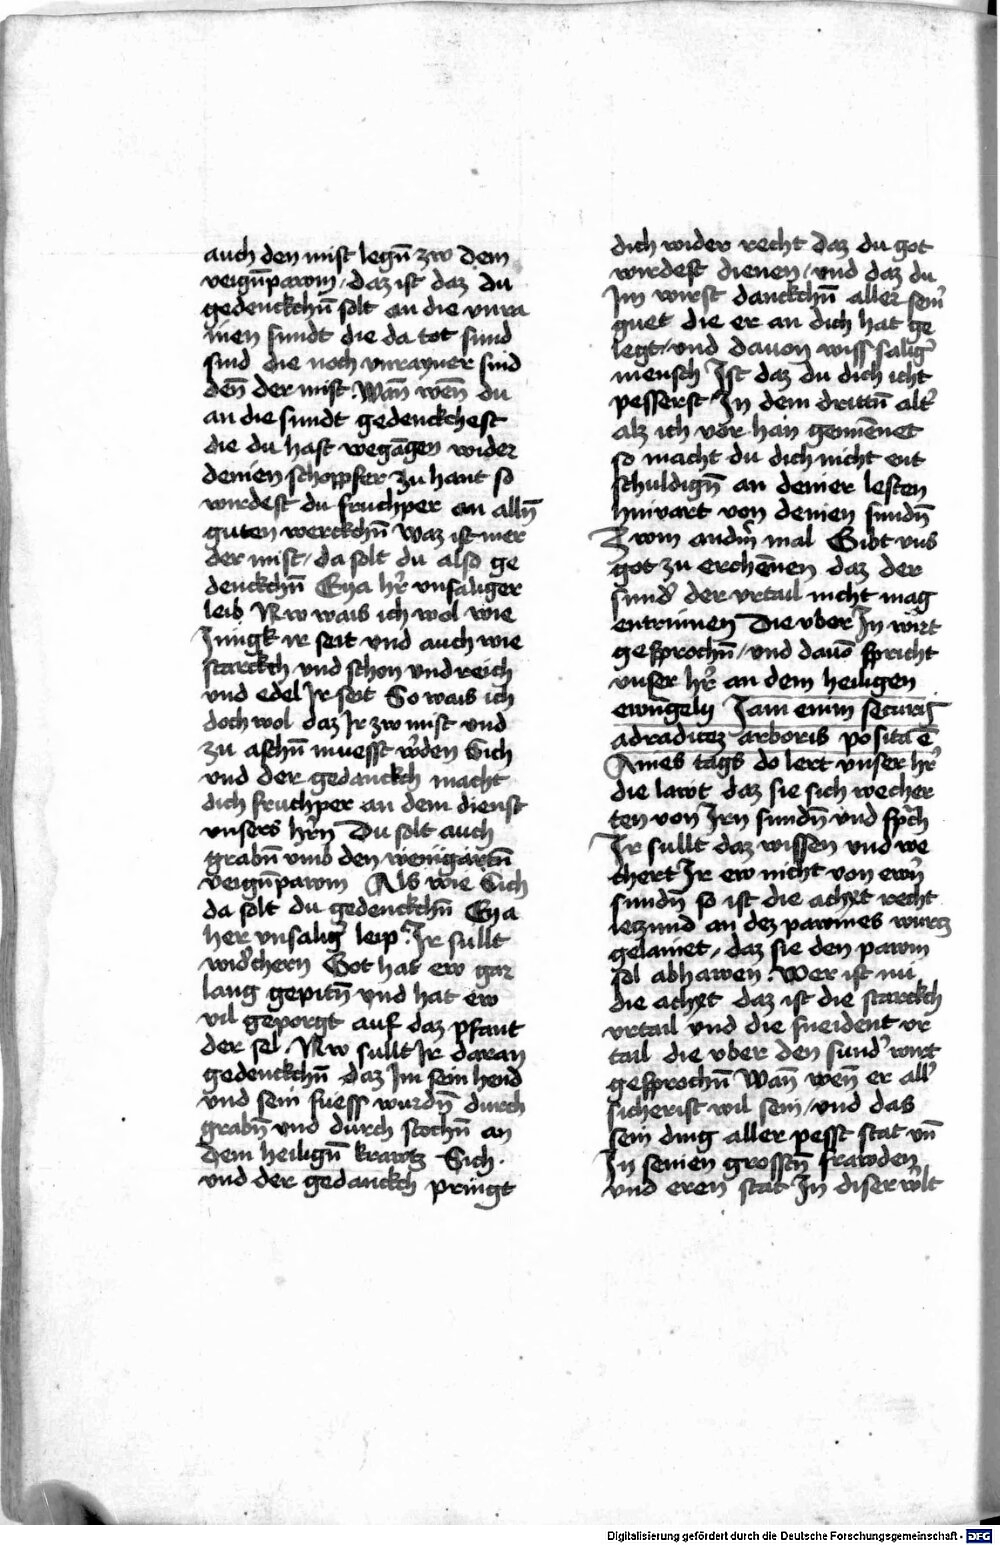 auch den mist legn̄ zw dem
veign̄pawm / daz ist daz du
gedenckchn̄ solt an die vnra
inen sundt die da tot sund
sind die noch vnrayner sind
den̄ der mist. Wan̄ wen̄ du
an die sundt gedenckchest
die du hast wegāgen wider
deinen schoppfer zu hant so
wirdest du fruchper an alln̄
guten werckchn̄ Waz ist mer
der mist / da solt du also ge
denckchn̄ Eya hr̄ vnsaliger
leib Nw wais ich wol wie
Jungk ir seit vnd auch wie
starckch vnd schon vnd reich
vnd edel Jr seit So wais ich
doch wol daz Jr zw mist vnd
zu aschn̄ muesst w'den Sich
vnd der gedanckch macht
dich fruchper an dem dienst
vnsers hr̄n Du solt auch
grabn̄ vmb den weingartn̄
veign̄pawm Als wie Sich
da solt du gedenckchn̄ Eya
her vnsalig' leip Jr sullt
wid'chern Got hat ew gar
lang gepitn̄ vnd hat ew
vil geporgt auf daz pfant
der sel. Nw sullt Jr daran
gedenckchn̄ daz Jm sein hend
vnd sein fuess wurdn̄ durch
grabn̄ vnd durch stochn̄ an
dem heilign̄ krawtz Sich.
vnd der gedanckch pringt
dich wider recht daz du got
wirdest dienen / vnd daz du
Jm wirst danckchn̄ aller sein'
guet die er an dich hat ge
legt / vnd dauon wiss salig'
mensch Jst daz du dich icht
pesserst Jn dem drittn̄ alt'
alz ich vor han genēnet
so macht du dich nicht ent
schuldign̄ an deiner lesten
hinvart von deinen sundn̄
Zwm andn̄ mal Gibt vns
got zu erchēnen daz der
sund' der vrtail nicht mag
entrinnen Die vber Jn wirt
gesprochn̄ / vnd dauō spricht
vnser hr̄ an dem heiligen
ewangelij Jam enim securis
ad radicez arboris posita ē
Aines tags do lert vnser hr̄
die lawt daz sie sich wecher
ten von Jrn sundn̄ vnd sp̄ch
Jr sullt daz wissen vnd we
chert Jr ew nicht von ewrn̄
sundn̄ so ist die achxt recht
letzund an dez pawmes wurtz
gelainet / daz sie den pawm
sol abhawen. Wer ist nu
die achxt daz ist die starckch
vrtail vnd die sneident vr
tail die vber den sund' wirt
gesprochn̄ Wan̄ wen̄ er all'
sicherist wil sein / vnd das
sein ding aller pesst stat vn̄
Jn seinen grossen frawden
vnd eren stat Jn diser w'lt
Digitalisierung gefördert durch die Deutsche Forschungsgemeinschaft - DFG